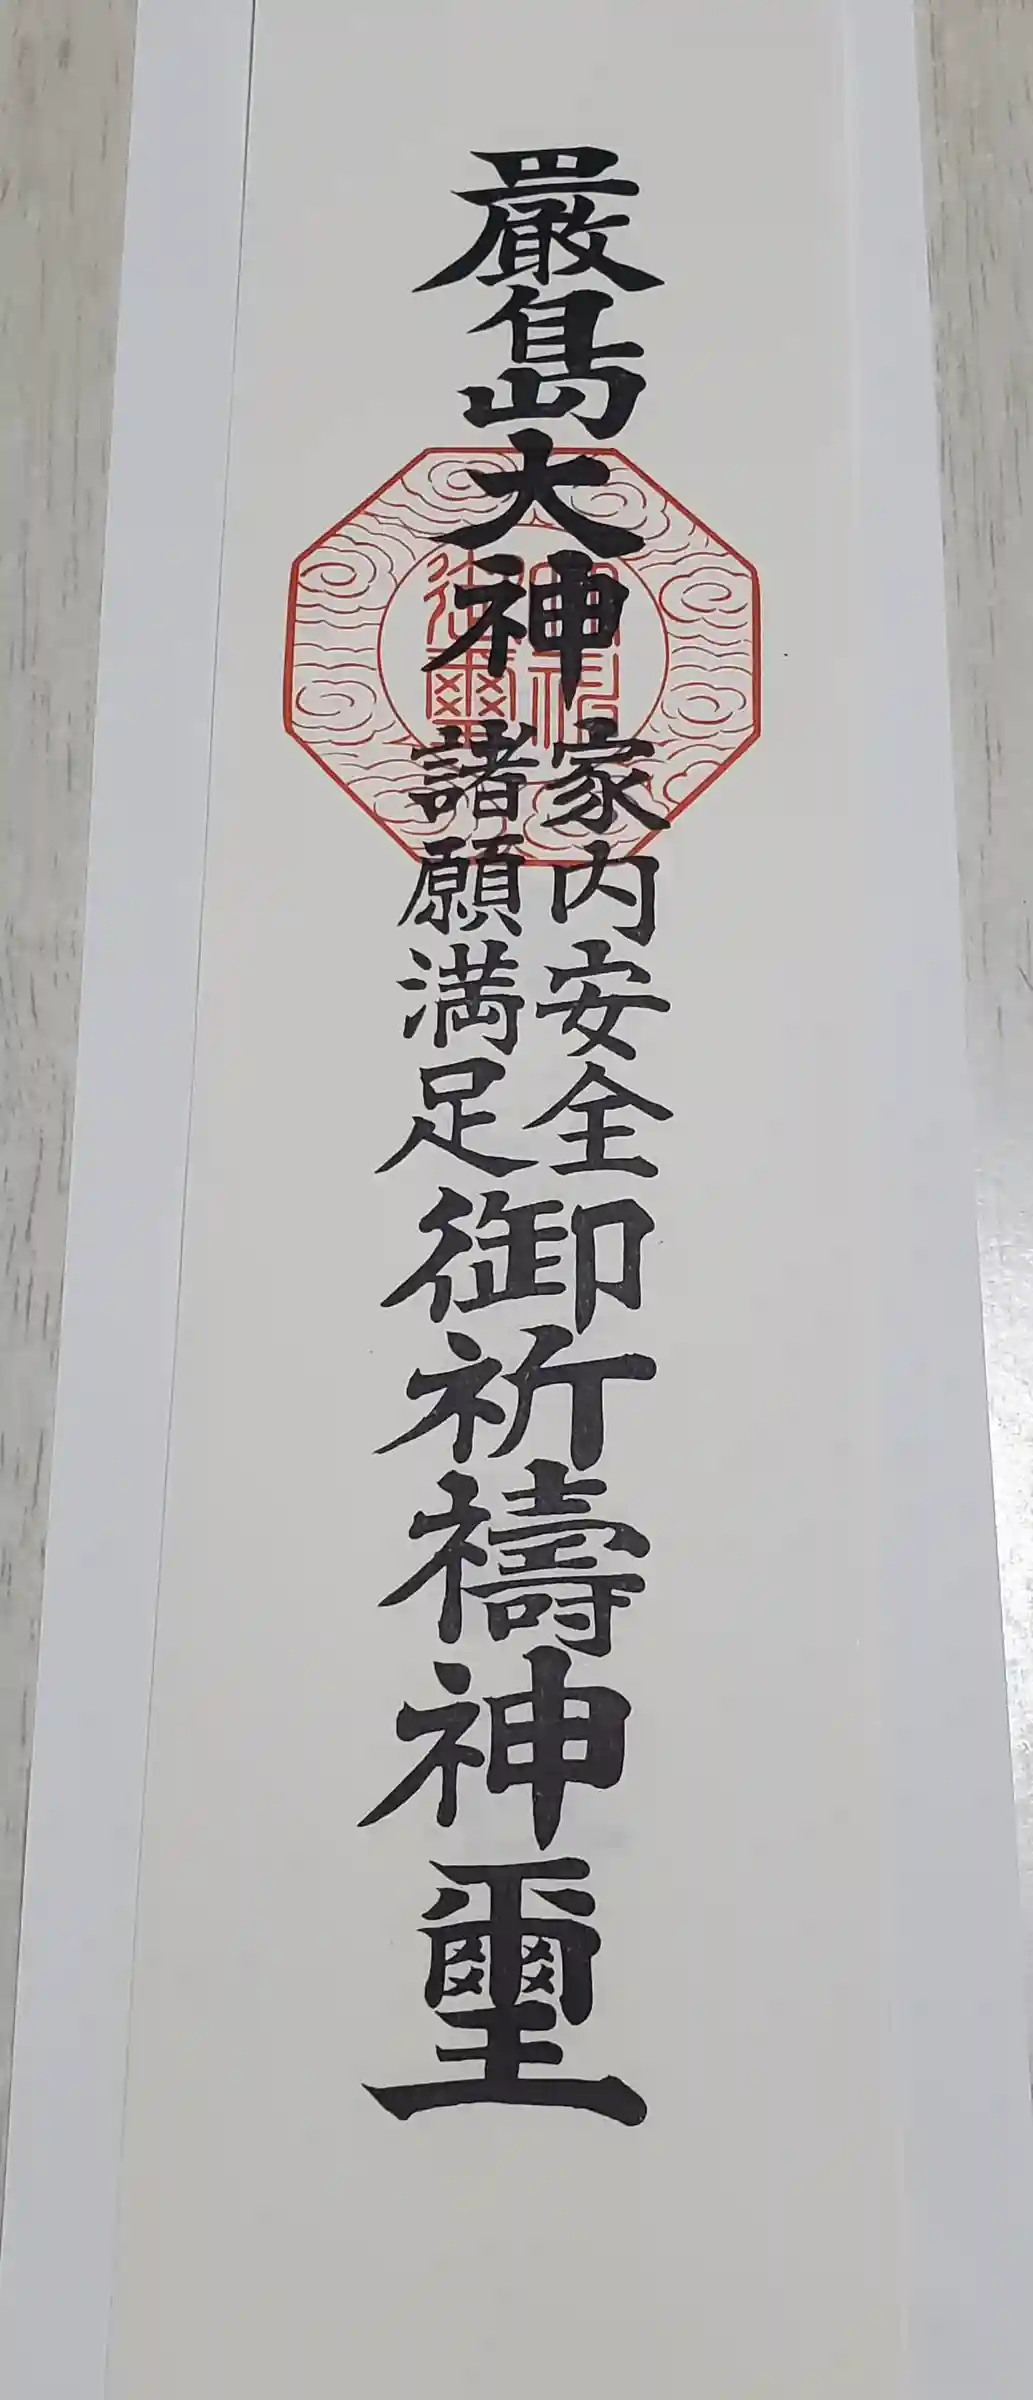 嚴島大神
家内安全
諸願満足
御祈禱神璽